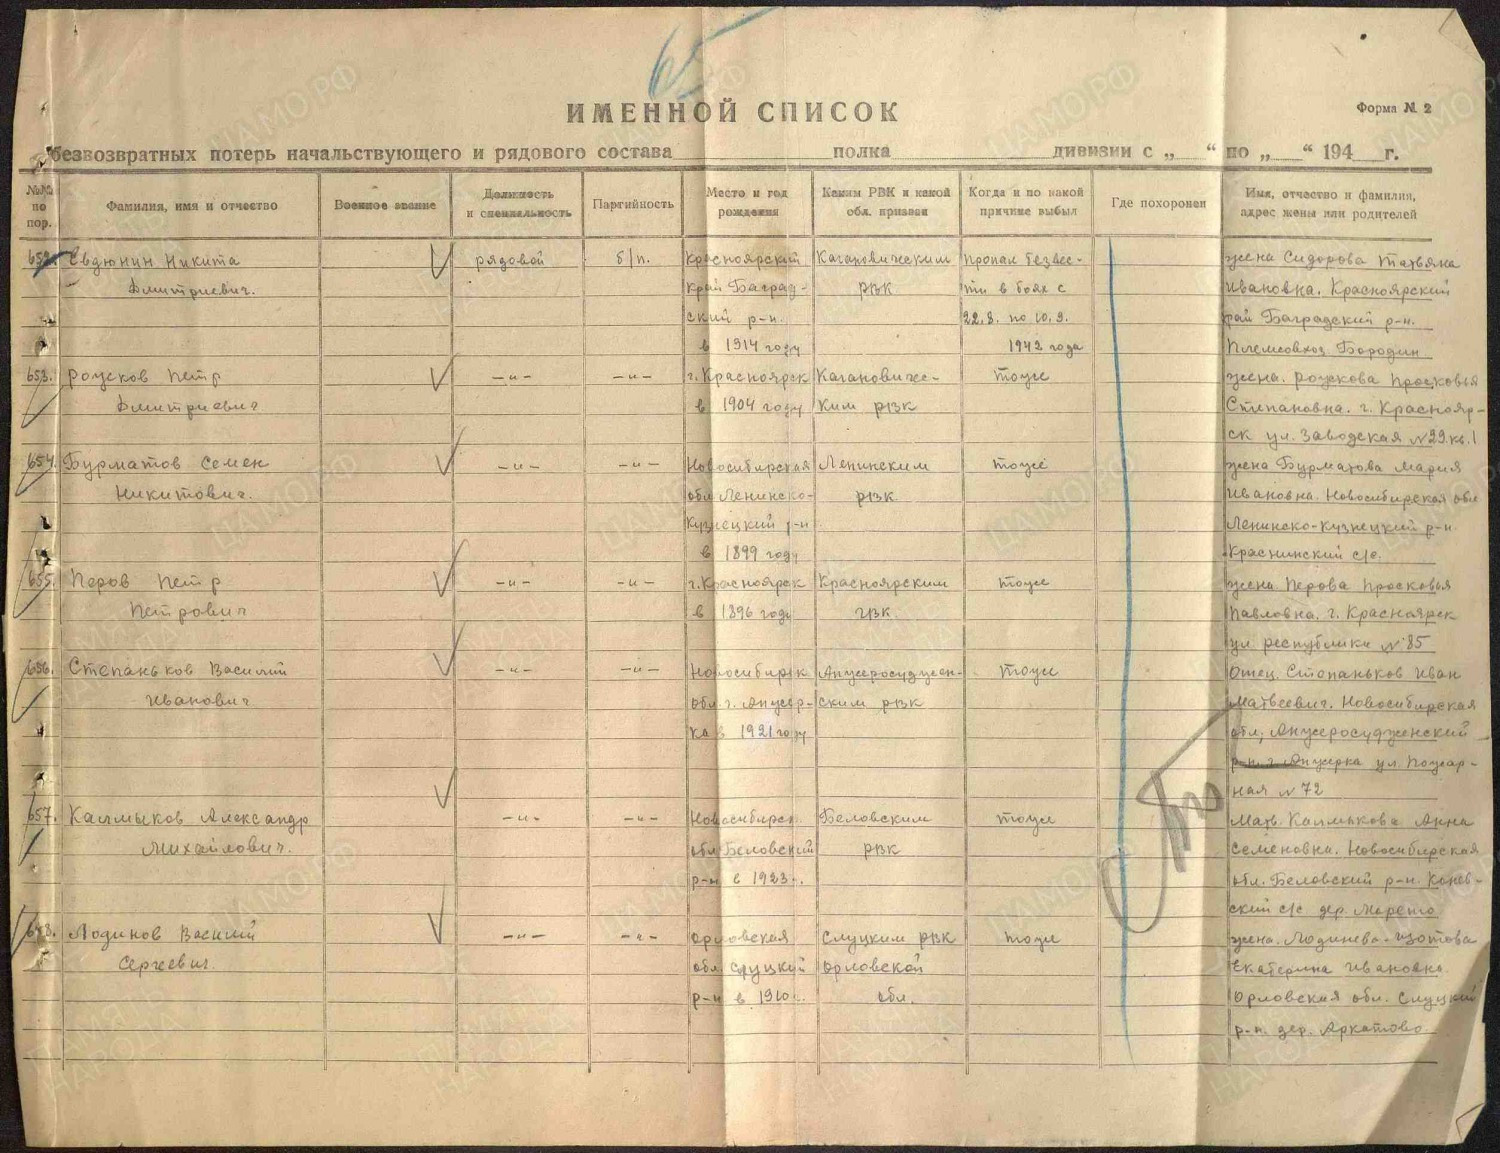 65
ИМЕННОЙ СПИСОК
Форма № 2
безвозвратных потерь начальствующего и рядового состава полка дивизии с „ “ по „ “ 194 г.
№№ по пор.
Фамилия, имя и отчество
Военное звание
Должность и специальность
Партийность
Место и год рождения
Каким РВК и какой обл. призван
Когда и по какой причине выбыл
Где похоронен
Имя, отчество и фамилия, адрес жены или родителей
652. Евдюнин Никита рядовой б/п. Красноярский Кагановическим пропал безвес- жена Сидорова Татьяна
Дмитриевич. край Баград- РВК ти в боях с Ивановна. Красноярский
ский р-н. 22.8. по 10.9. край Баградский р-н.
в 1914 году 1942 года Племсовхоз Бородин
653. Рожков Петр —"— —"— г. Красноярск Кагановичес- тоже жена. Рожкова Просковья
Дмитриевич в 1904 году ким РВК Степановна. г. Краснояр-
ск ул. Заводская №29 кв. 1
654. Бурматов Семен —"— —"— Новосибирская Ленинским тоже жена Бурматова Мария
Никитович. обл. Ленинско- РВК Ивановна. Новосибирская обл
Кузнецкий р-н Ленинско-Кузнецкий р-н
в 1899 году Краснинский с/с.
655. Перов Петр —"— —"— г. Красноярск Красноярским тоже жена Перова Просковья
Петрович в 1896 году ГВК. Павловна. г. Красноярск
ул республики №85
656. Степаньков Василий —"— —"— Новосибирск Анжеросуджен- тоже Отец. Степаньков Иван
Иванович обл. г. Анжер- ским РВК Матвеевич. Новосибирская
ка в 1921 году обл, Анжеросудженский
р-н. г. Анжерка ул. Пожар-
ная №72
657. Калмыков Александр —"— —"— Новосибирск Беловским тоже Мать. Калмыкова Анна
Михайлович. обл Беловский РВК Семеновна. Новосибирская
р-н в 1923 г. обл. Беловский р-н.
ский с/с дер.
658. Лодинов Василий —"— —"— Орловская Слуцким РВК тоже жена.
Сергеевич обл. Слуцкий Орловской Екатерина Ивановна
р-н в 1910 г. обл. Орловская обл. Слуцкий
р-н. дер. Аркатово